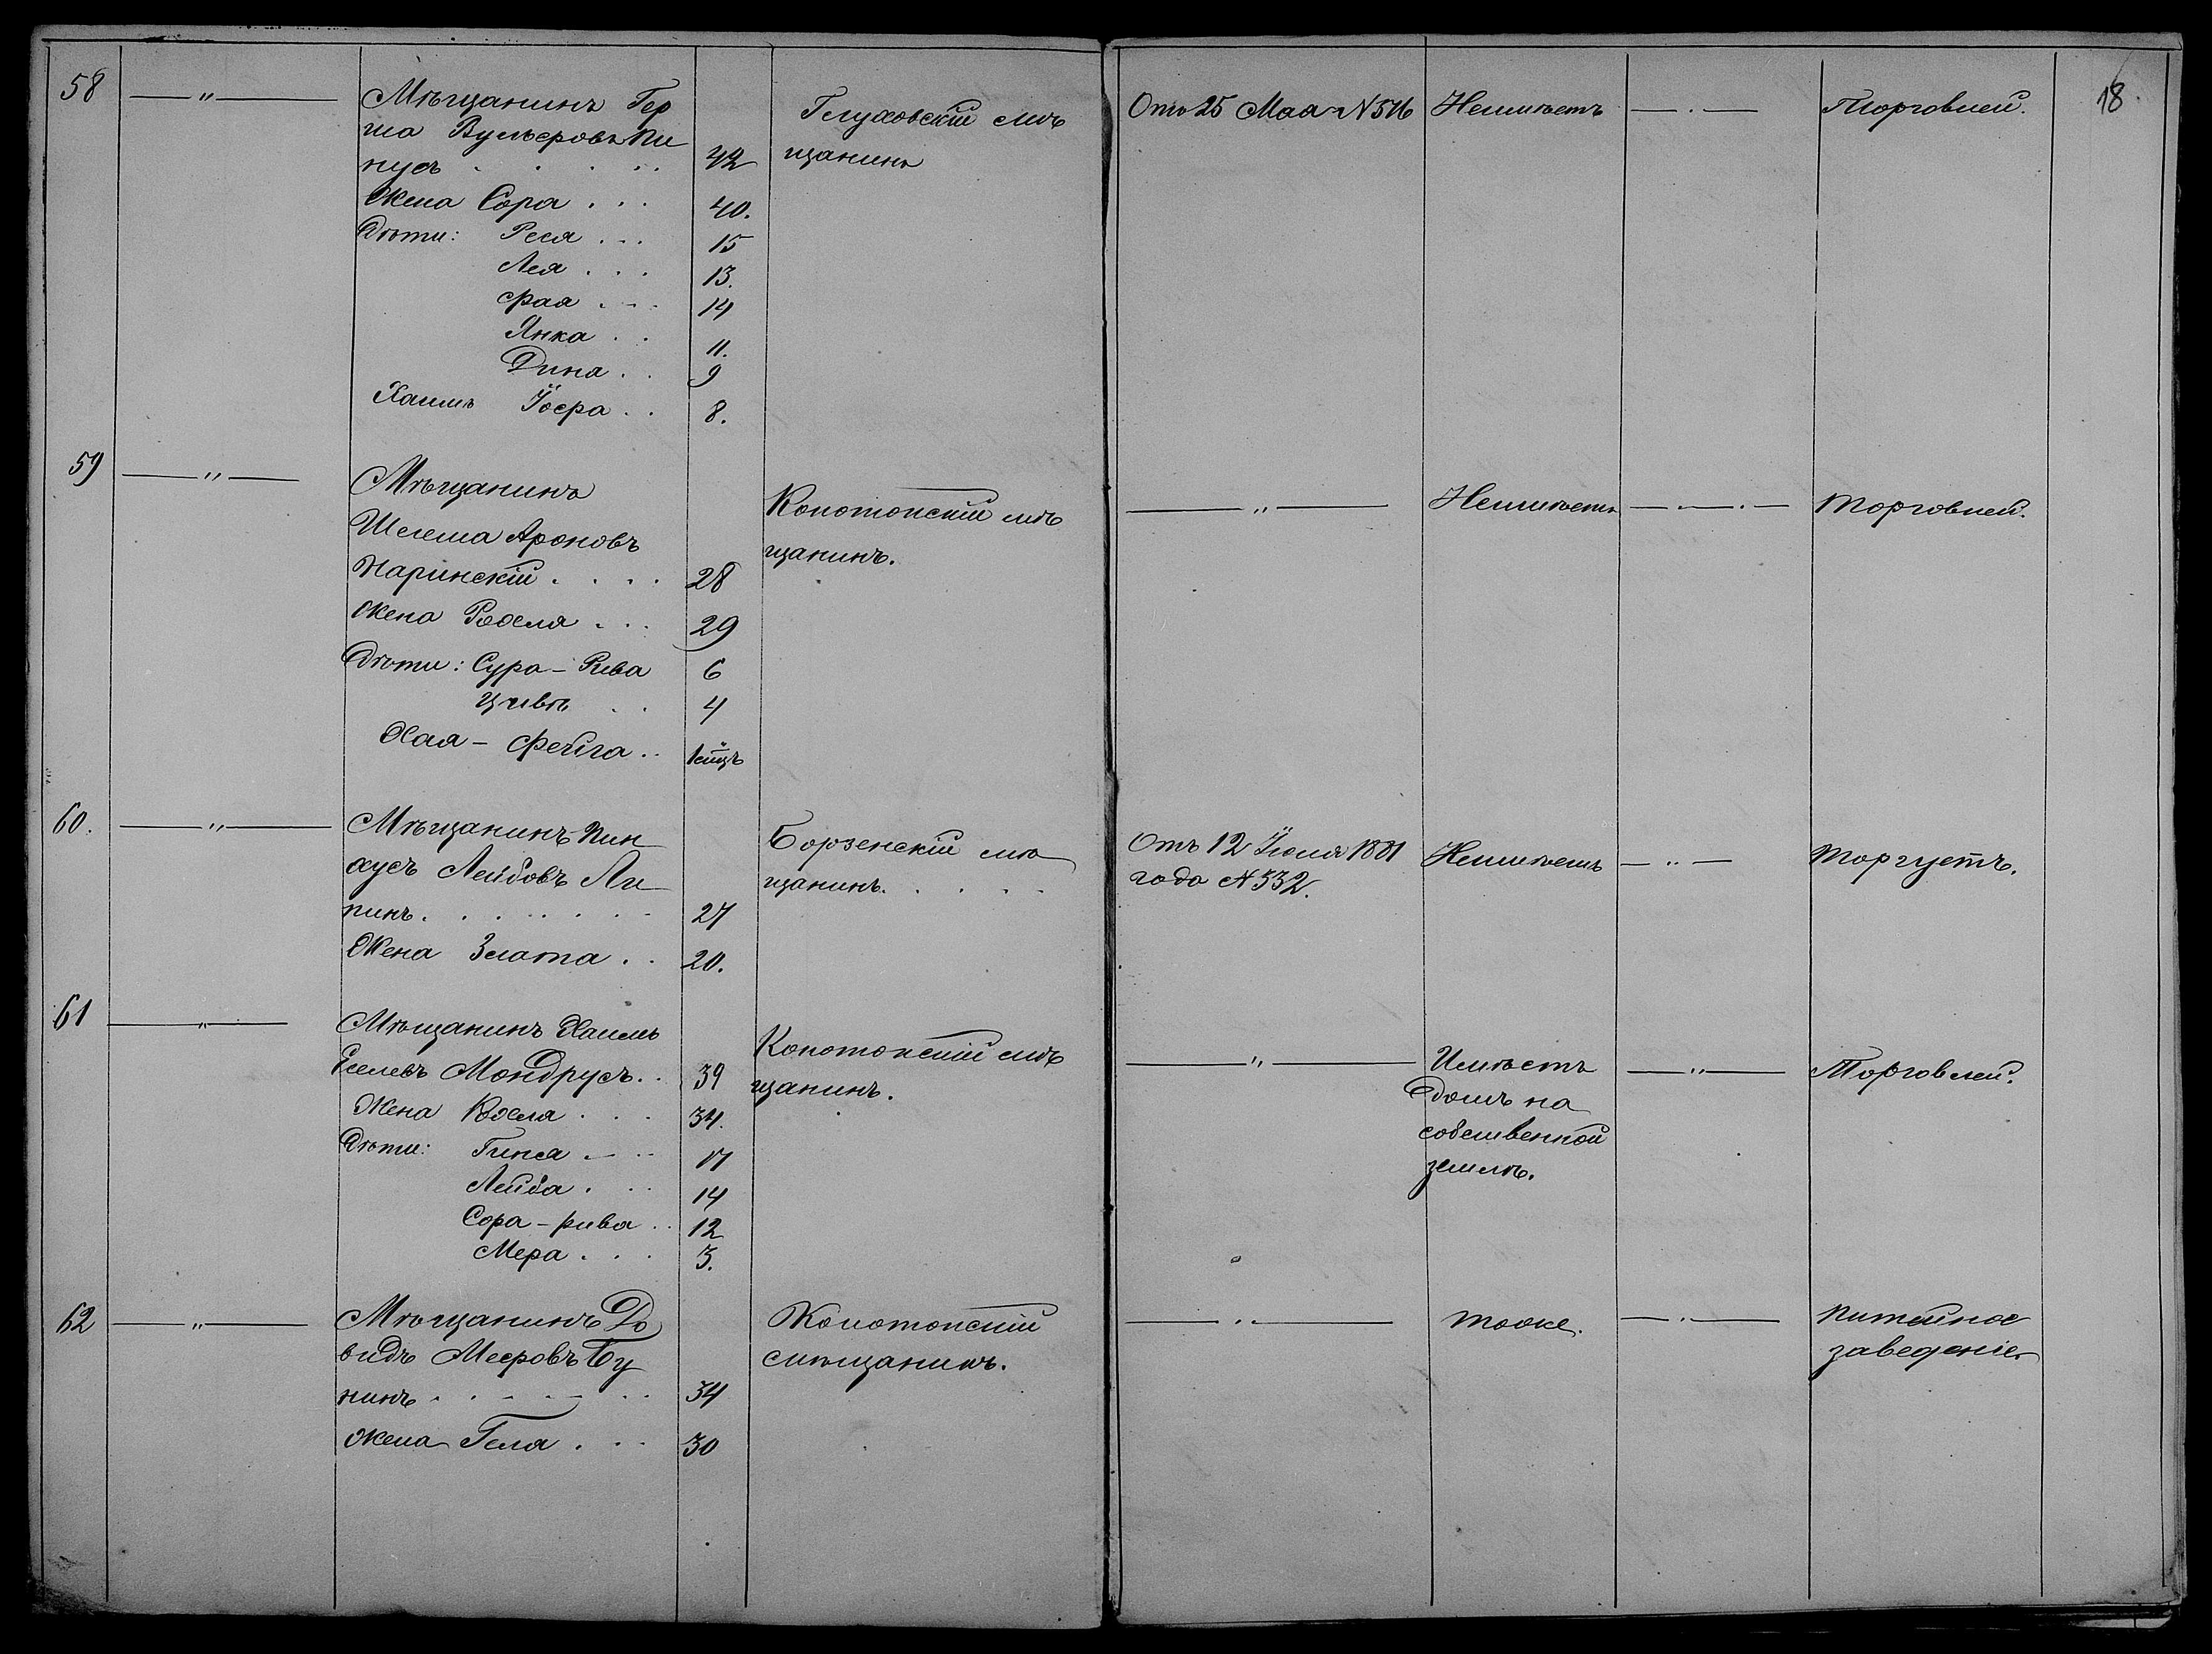 18
58 —"— Мѣщанинъ Гер
ша Вульфовъ Пи
нусъ . . . . . 42
Глуховскій мѣ
щанинъ
Отъ 25 Мая N 516
Неимѣетъ — . — Торговлей.
Жена Сора . . . 40.
Дѣти: Реся . . . 15
Лея . . . 13.
Фая . . . 14
Янка . . 11.
Дина . . 9
Хаимъ Іосфа . . 8.
59 —"— Мѣщанинъ
Шелема Ароновъ
Наринскій . . . . 28
Конотопскій мѣ
щанинъ.
—"— Неимѣетъ — . — Торговлей.
Жена Роселя . . . 29
Дѣти: Сура-Рива 6
Цивѣ . . 4
Хая-Фейга . .
60. —"— Мѣщанинъ Пин
хусъ Лейбовъ Ли
пинъ . . . . . . . 27
Борзенскій мѣ
щанинъ. . . . .
Отъ 12 Іюля 1881
года N 532.
Неимѣетъ — .. — Торгуетъ.
Жена Злата . . 20.
61 —"— Мѣщанинъ Хаимъ
Еселевъ Мондрусъ . . 39
Конотопскій мѣ
щанинъ.
—"— Имѣетъ
домъ на
собственной
землѣ.
—"— Торговлей.
Жена . . . 34.
Дѣти: Гинся . . . 17
Лейба . . . 14
Сора-рива . . 12
Мера . . . 3.
62 —"— Мѣщанинъ До
видъ Меєровъ Бу
нинъ . . . . . . . 34
Конотопскій
мѣщанинъ.
—"— тоже. — . — Питейное
заведеніе.
Жена Геля . . . 30